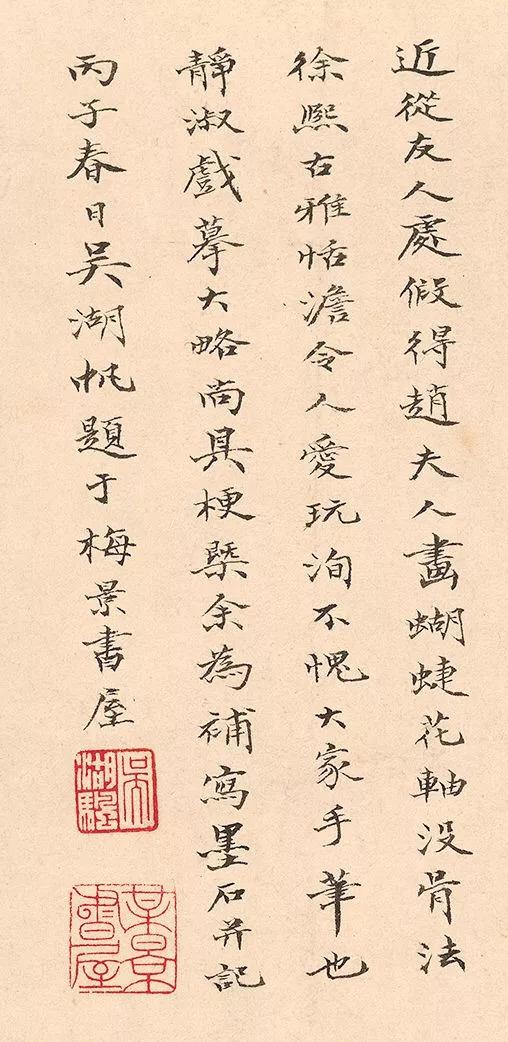 近從友人處假得趙夫人畫蝴蜨花軸没骨法
徐熙古雅恬澹令人愛玩洵不愧大家手筆也
靜淑戲摹大略尚具梗槩余為補寫墨石并記
丙子春日吳湖帆題于梅景書屋
吳湖颿
某景書屋